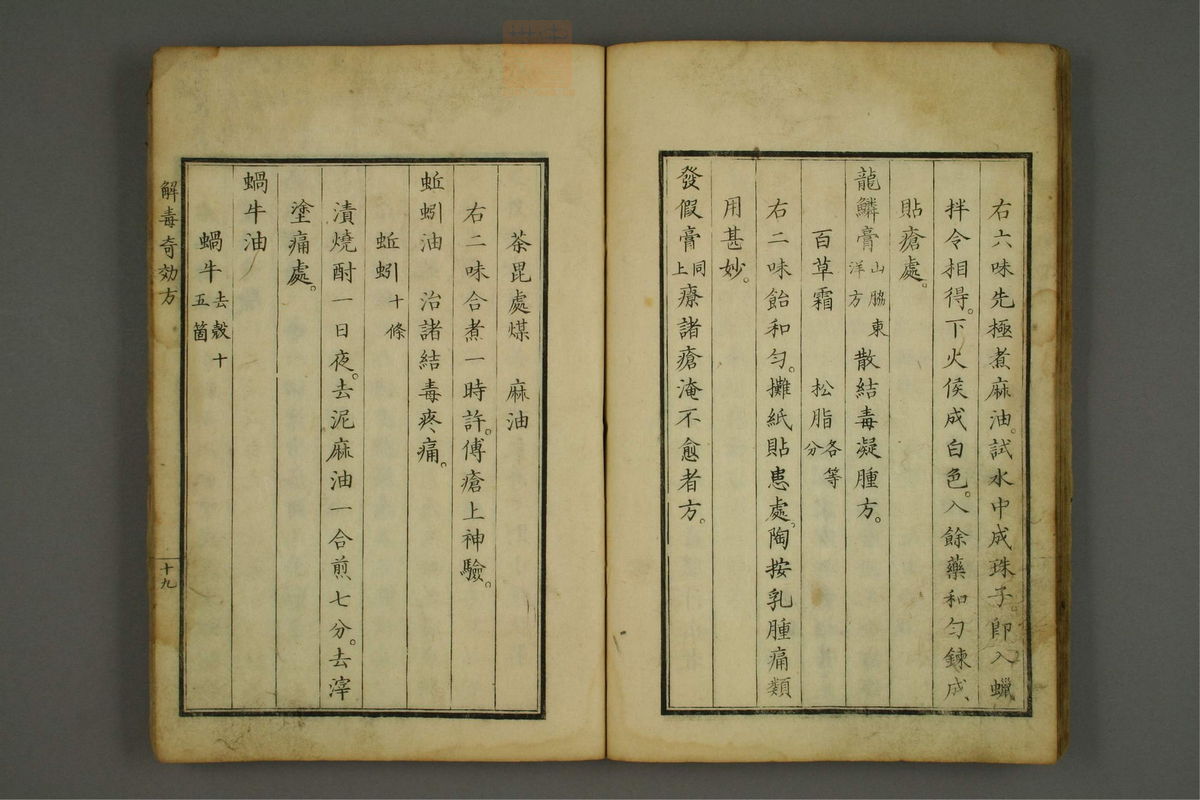 右六味先極煮麻油。試水中成珠子。即入蠟
拌令相得。下火侯成白色。入餘藥和匀鍊成、
貼瘡處。
龍鱗膏山脇東洋方 散結毒凝腫方。
百草霜 松脂各等分
右二味飴和匀。攤紙貼患處。陶按乳腫痛類
用甚妙。
發假膏同上療諸瘡淹不愈者方。
荼毘處煤 麻油
右二味合煮一時許。傅瘡上神驗。
蚯蚓油 治諸結毒疼痛。
蚯蚓十條
漬燒酎一日夜。去泥麻油一合煎七分。去滓
塗痛處。
蝸牛油
蝸牛去殼十五箇
解毒奇効方
十九